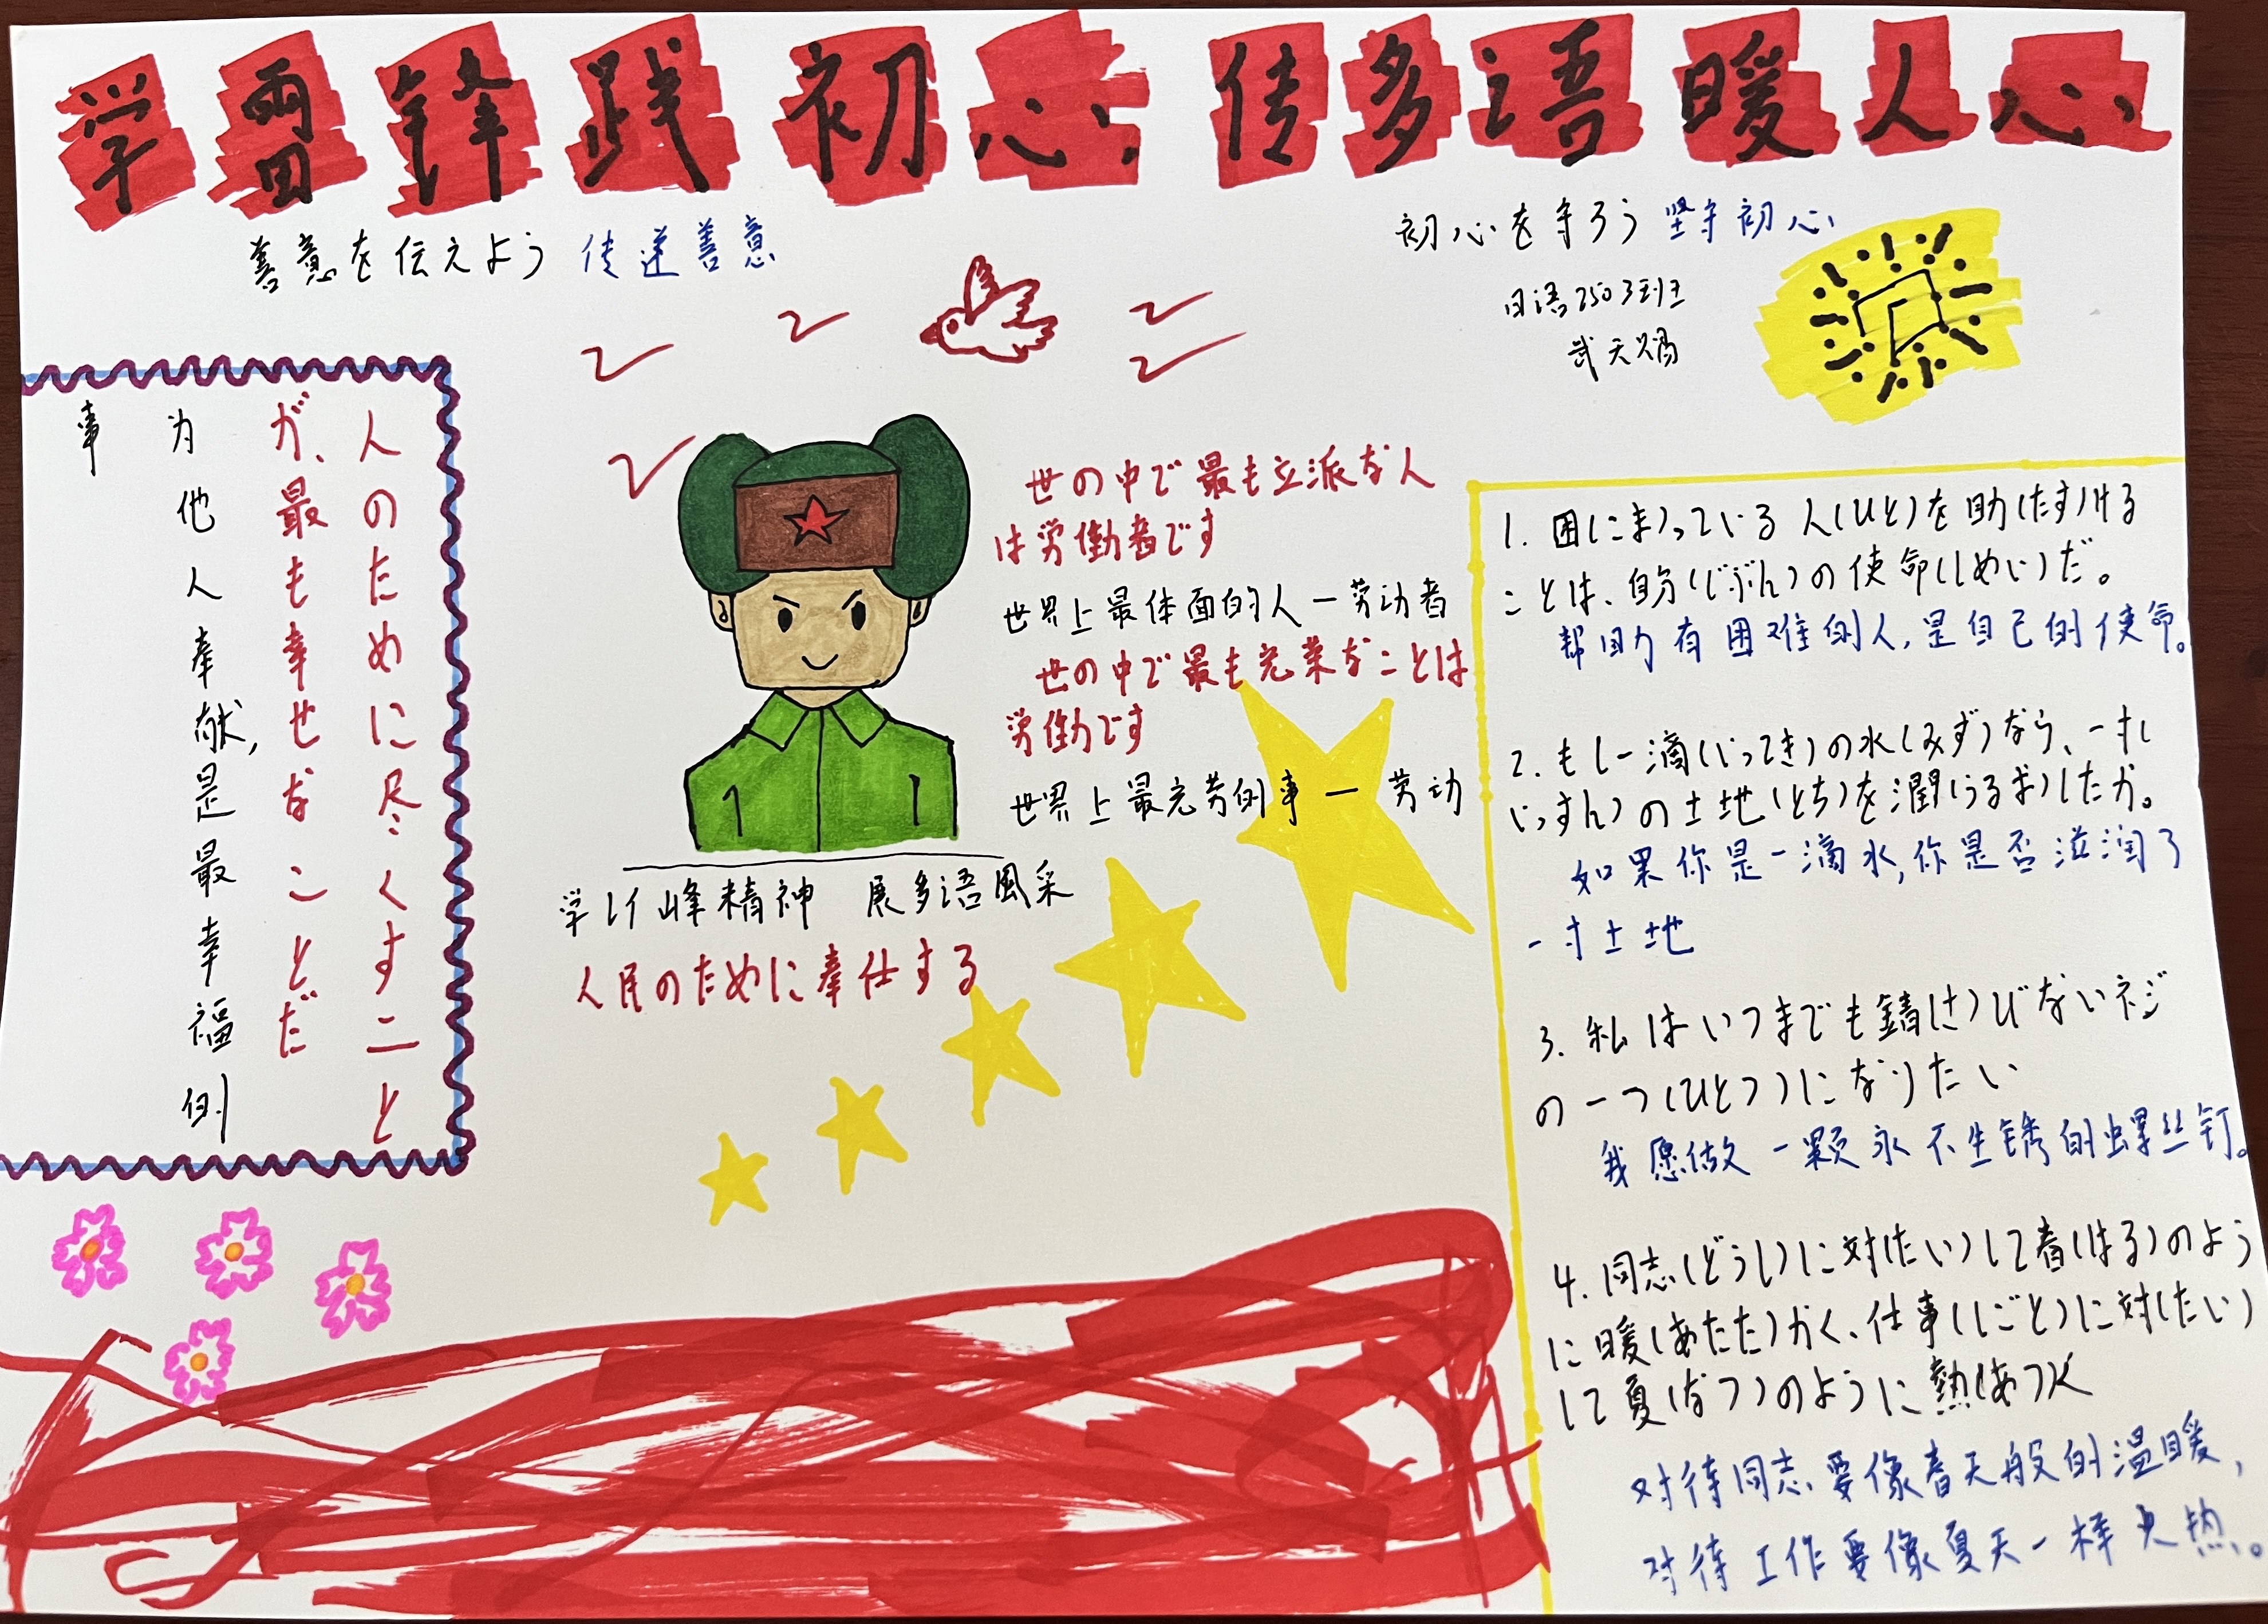 学雷锋践初心 传多语暖人心
善意を伝えよう 传递善意
初心を守ろう 坚守初心
日语2503班
武天赐
人のために尽くすこと
が、最も幸せなことだ
为他人奉献,是最幸福的
事
世の中で最も立派な人
は労働者です
世界上最体面的人一劳动者
世の中で最も充実なことは
労働です
世界上最充劳的事一劳动
学习峰精神 展多语風采
人民のために奉仕する
1. 困(こま)っている人(ひと)を助(たす)ける
ことは、自分(じぶん)の使命(しめい)だ。
帮助有困难的人,是自己的使命。
2. もし一滴(いってき)の水(みず)なら、一寸(
いっすん)の土地(とち)を潤(うるお)したか。
如果你是一滴水,你是否滋润了
一寸土地
3. 私はいつまでも錆(さ)びないネジ
の一つ(ひとつ)になりたい
我愿做一颗永不生锈的螺丝钉。
4. 同志(どうし)に対(たい)して春(はる)のよう
に暖(あたた)かく、仕事(しごと)に対(たい)
して夏(なつ)のように熱(あつ)く
对待同志要像春天般的温暖,
对待工作要像夏天一样火热。